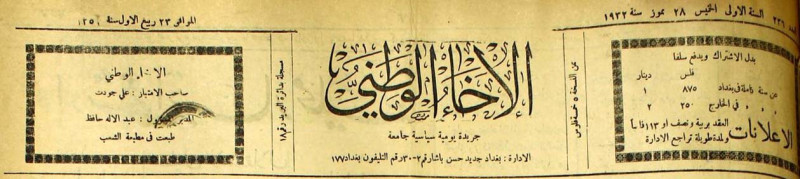 السنة الاولى الخميس ٢٨ تموز سنة ١٩٣٢
الموافق ٢٣ ربيع الاول سنة
بدل الاشتراك ويدفع سلفا
فلس دينار
عن سنة كاملة في بغداد ٨٧٥ ١
في الخارج ٢٥٠ ٢
الاعلانات
العقد بربية ونصف او ١١٣ فلساً
ولمدة طويلة تراجع الادارة
عن النسخة ٥ خمسة فلوس
الاخاء الوطني
جريدة يومية سياسية جامعة
الادارة : بغداد جديد حسن باشا رقم ٢-٣٠ رقم التليفون بغداد ١٧٧
مسجلة بدائرة البريد رقم ١٨
الاخاء الوطني
صاحب الامتياز : علي جودت
المدير المسؤول : عبد الاله حافظ
طبعت في مطبعة الشعب